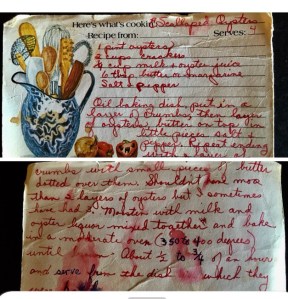 Here's what's cookin' Scalloped Oysters
Recipe from: Serves:
1 pint oysters
2 cups cracker
½ cup milk & oyster juice
6 tbsp butter or margarine
Salt & pepper
Oil baking dish, put in a
layer of crumbs, then layer
of oysters, butter on top in
little pieces salt &
pepper. Repeat ending
with a layer of
crumbs with small pieces of butter
dotted over them. Shouldn't have more
than 2 layers of oysters but I sometimes
have had 3. Moisten with milk and
oyster liquor mixed together and bake
in a moderate oven (350 to 400 degrees)
until About ½ to ¾ of an hour
and serve from the dish which they
were